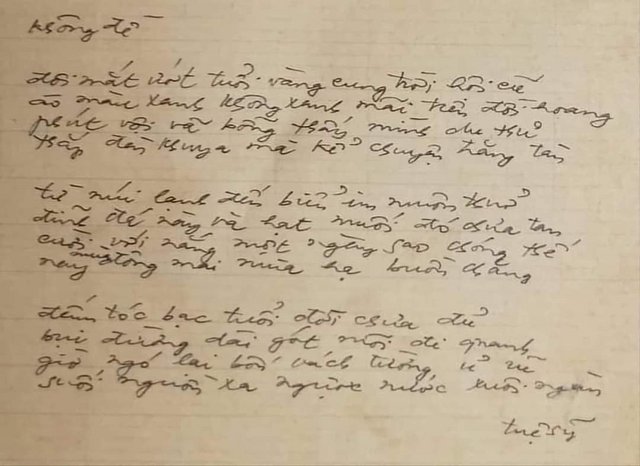 không đề
đôi mắt ướt tuổi vàng cung trời hội cũ
áo màu xanh không xanh mãi trên đồi hoang
phút vội vã bỗng thấy mình du thủ
thắp đèn khuya mà kể chuyện trăng tàn
từ núi lạnh đến biển im muôn thuở
đỉnh đá này và hạt muối đó chưa tan
cười với nắng một ngày sao chóng thế
nay mùa đông mai mùa hạ buồn chăng
đếm tóc bạc tuổi đời chưa đủ
bụi đường dài gót mỏi đi quanh
giờ ngó lại bốn vách tường ủ rũ
suối nguồn xa ngược nước xuôi ngàn
tuệ sỹ